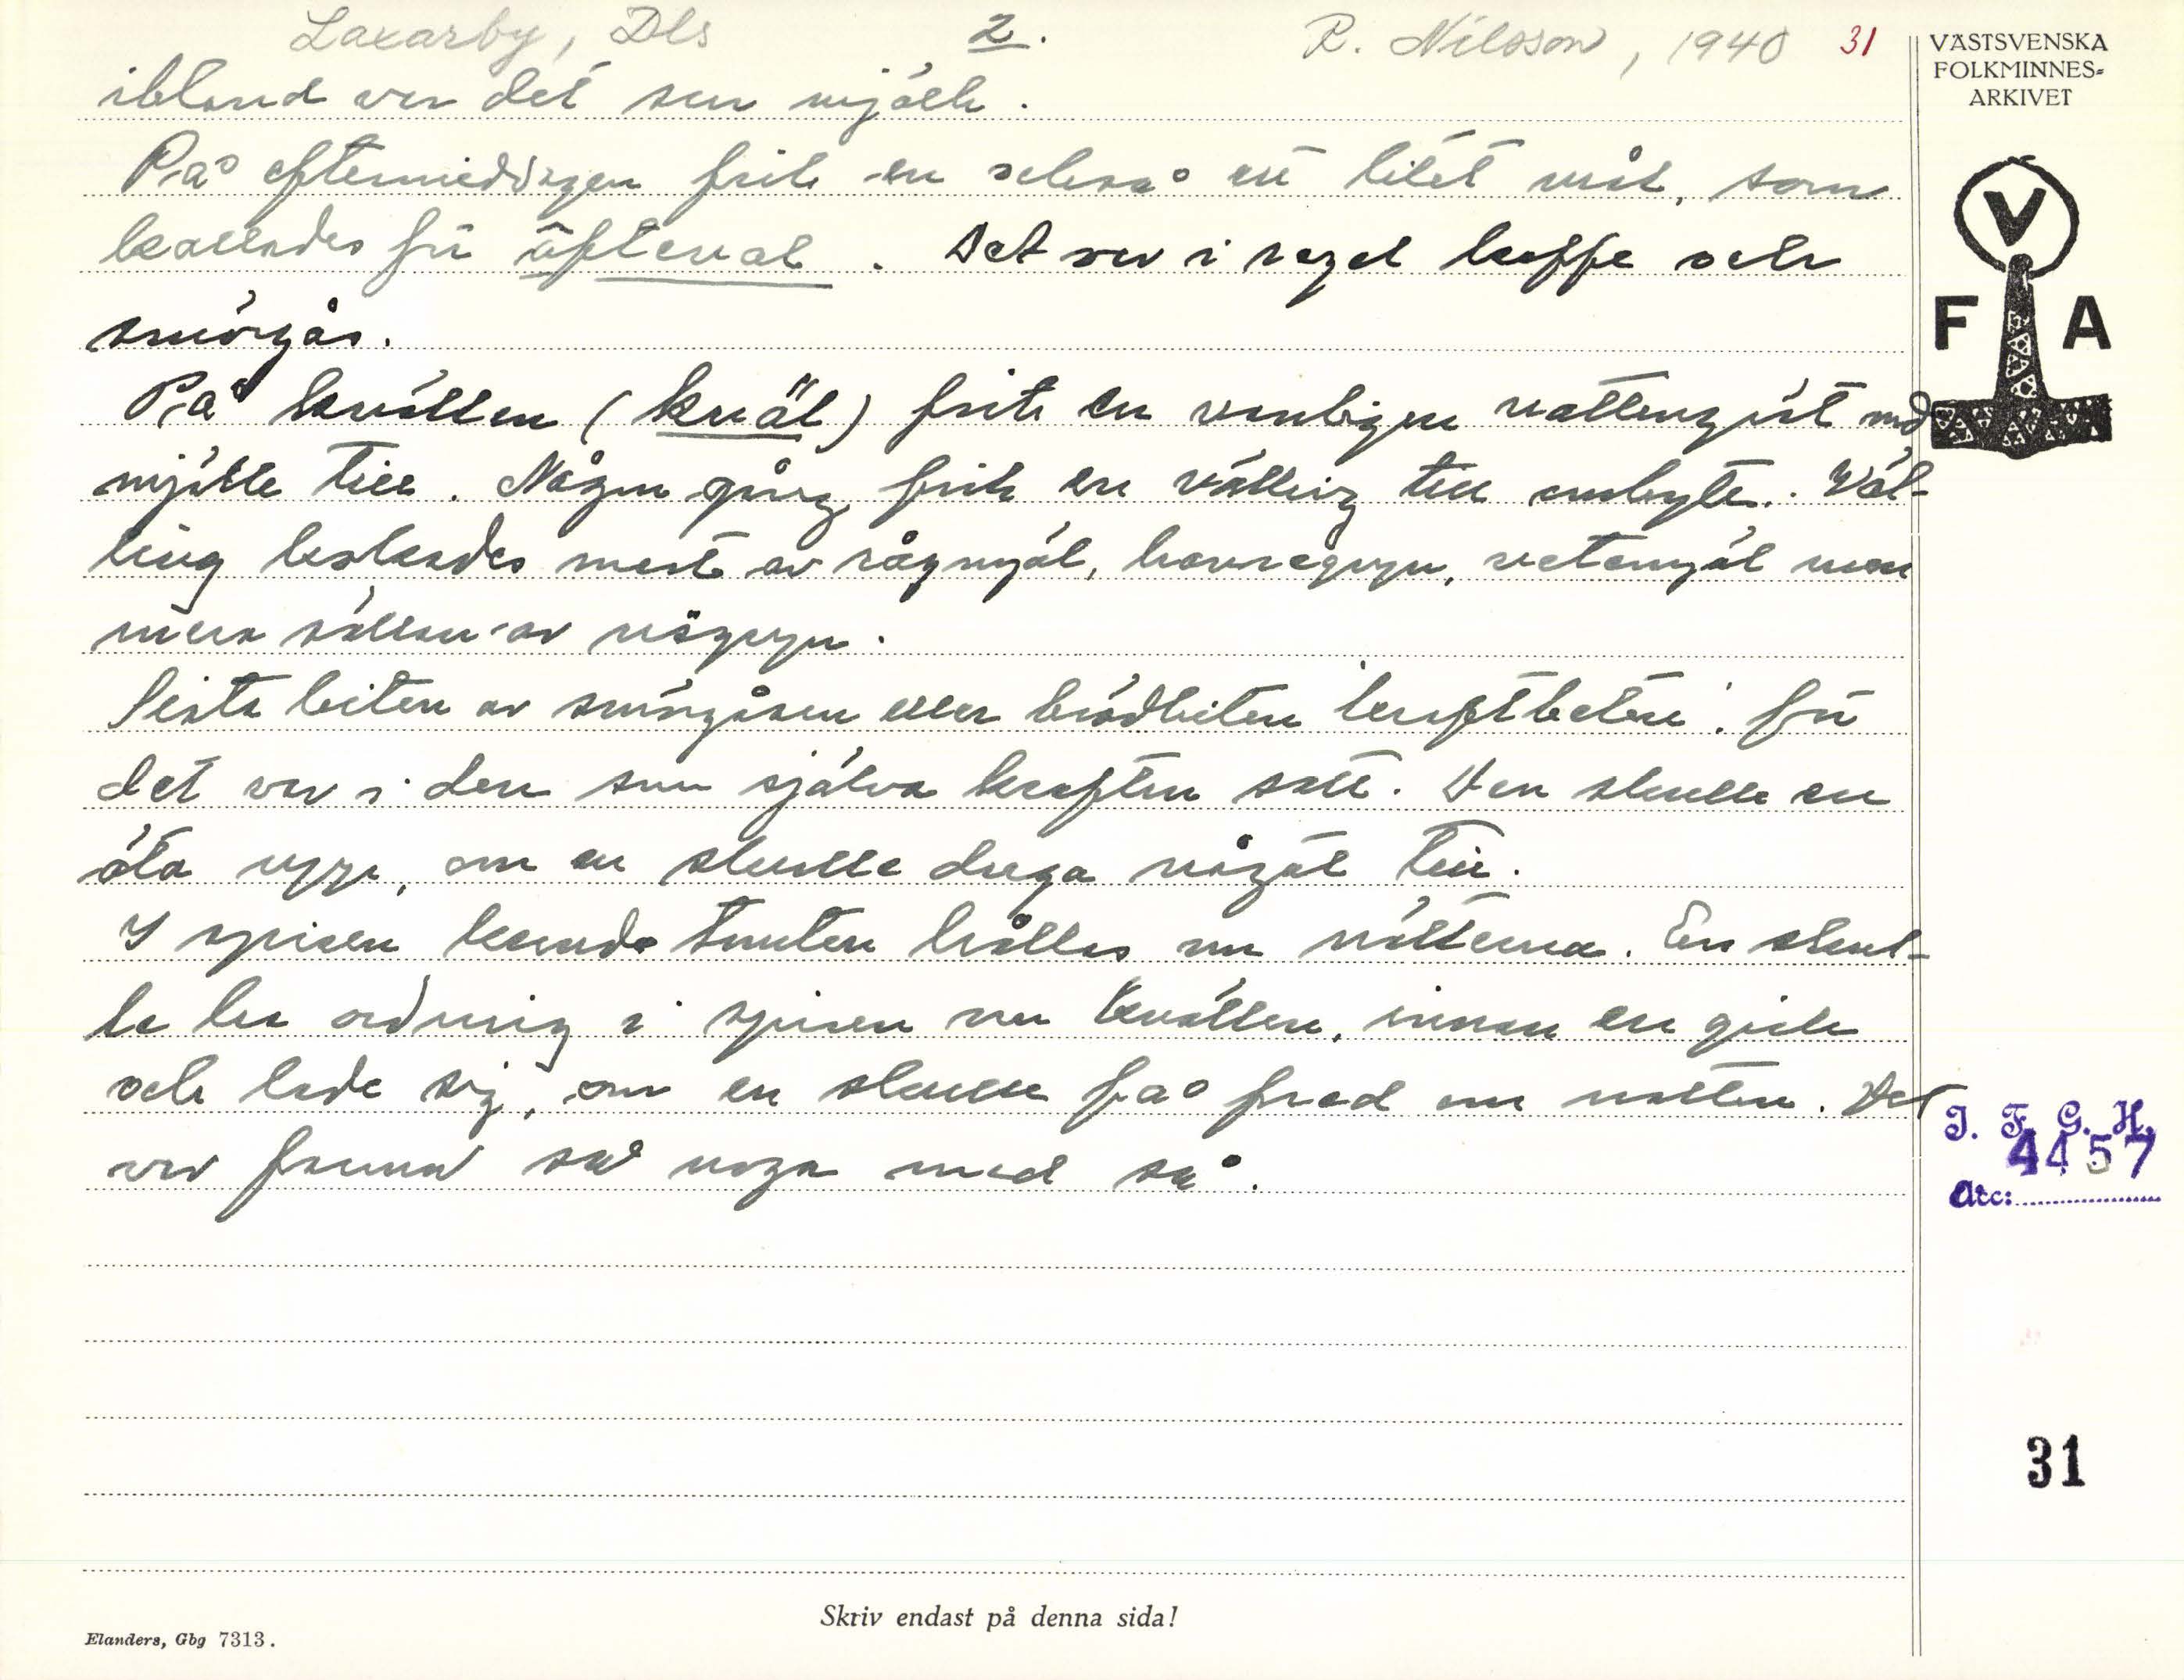 Laxarby, Dls 2. R. Nilsson, 1940 31
VÄSTSVENSKA
FOLKMINNES-
ARKIVET
ibland var det sur mjölk.
På eftermiddagen fick en också ett litet mål, som
kallades för äfteval. Det var i regel kaffe och
smörgås.
V
F A
På kvällen (kväl) fick en vanligen vattengröt med
mjölk till. Någon gång fick en välling till ombyte. Väl-
ling kokades mest av rågmjöl, havregryn, vetemjöl men
mera sällan av risgryn.
Sista biten av smörgåsen eller brödbiten 'kraftbeten', för
det var i den som själva kraften satt. Den skulle en
äta upp, om en skulle duga något till.
I spisen kunde tomten hålla om nätterna. En skul-
le ha ordning i spisen om kvällen, innan en gick
och lade sig, om en skulle få fred om natten. Det
var formor så noga med så.
J. F. G. H.
4457
Acc:
31
Skriv endast på denna sida!
Elanders, Gbg 7313.